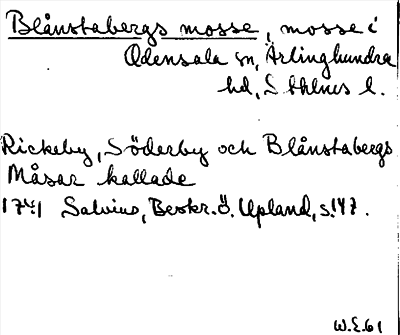 Blånstabergs mosse, mosse i
Odensala sn, Ärlinghundra
hd, Sthlms l.
Rickeby, Söderby och Blånstabergs
Måsar kallade
1741 Salvius, Beskr. Ö. Upland, s. 147.
W.E. 61